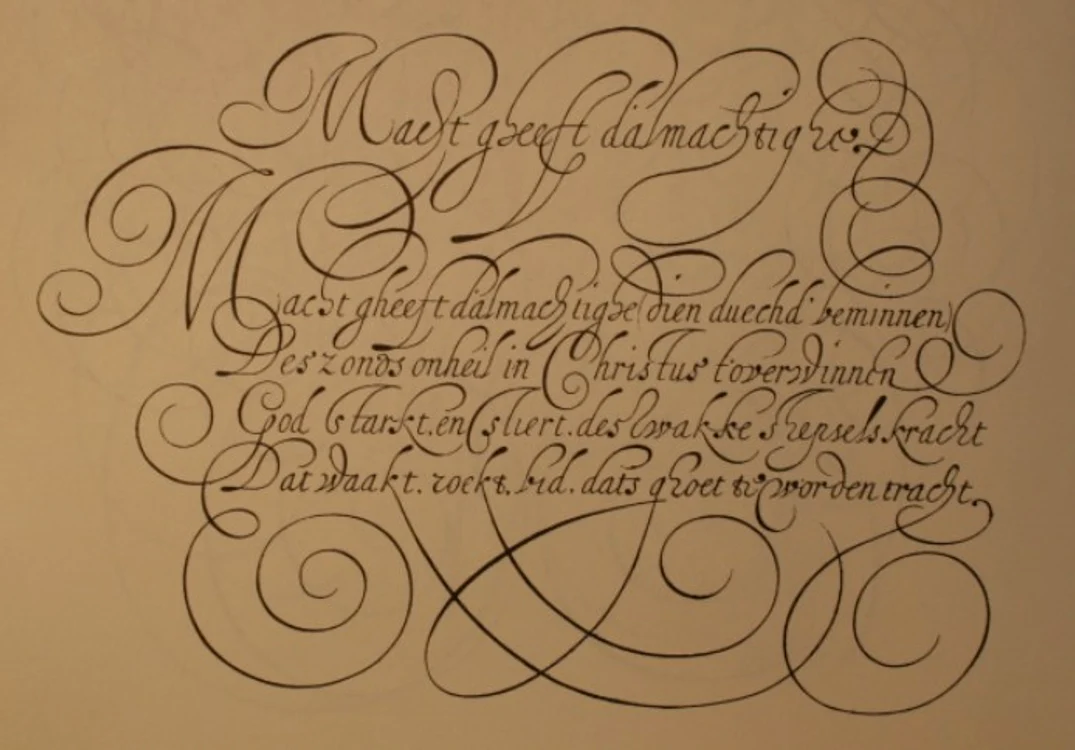 Macht gheeft dalmachtighe.
Macht gheeft dalmachtighe (dien duechd' beminnen)
Des zonds onheil in Christus t'overwinnen
God starkt. en stiert. des swakke shepsels kracht
Dat waakt. zoekt. bid. dats ghoet te worden tracht.